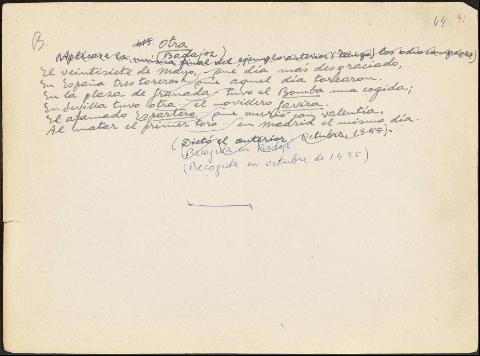 B.
64 51
Otra
(Badajoz)
Aplícase la misma final del ejemplo anterior
El veintisiete de Mayo, que día más desgraciado,
En España tres toreros que aquel día torearon.
En la plaza de Granada tuvo el Bomba una cogida;
En Sevilla tuvo otra el novillero Favira.
El afamado Espartero, que murió con valentía,
Al matar el primer toro en Madrid el mismo día.
(Dictó el anterior, Octubre, 1995.
(Recogida en
(Recogida en octubre de 1995)